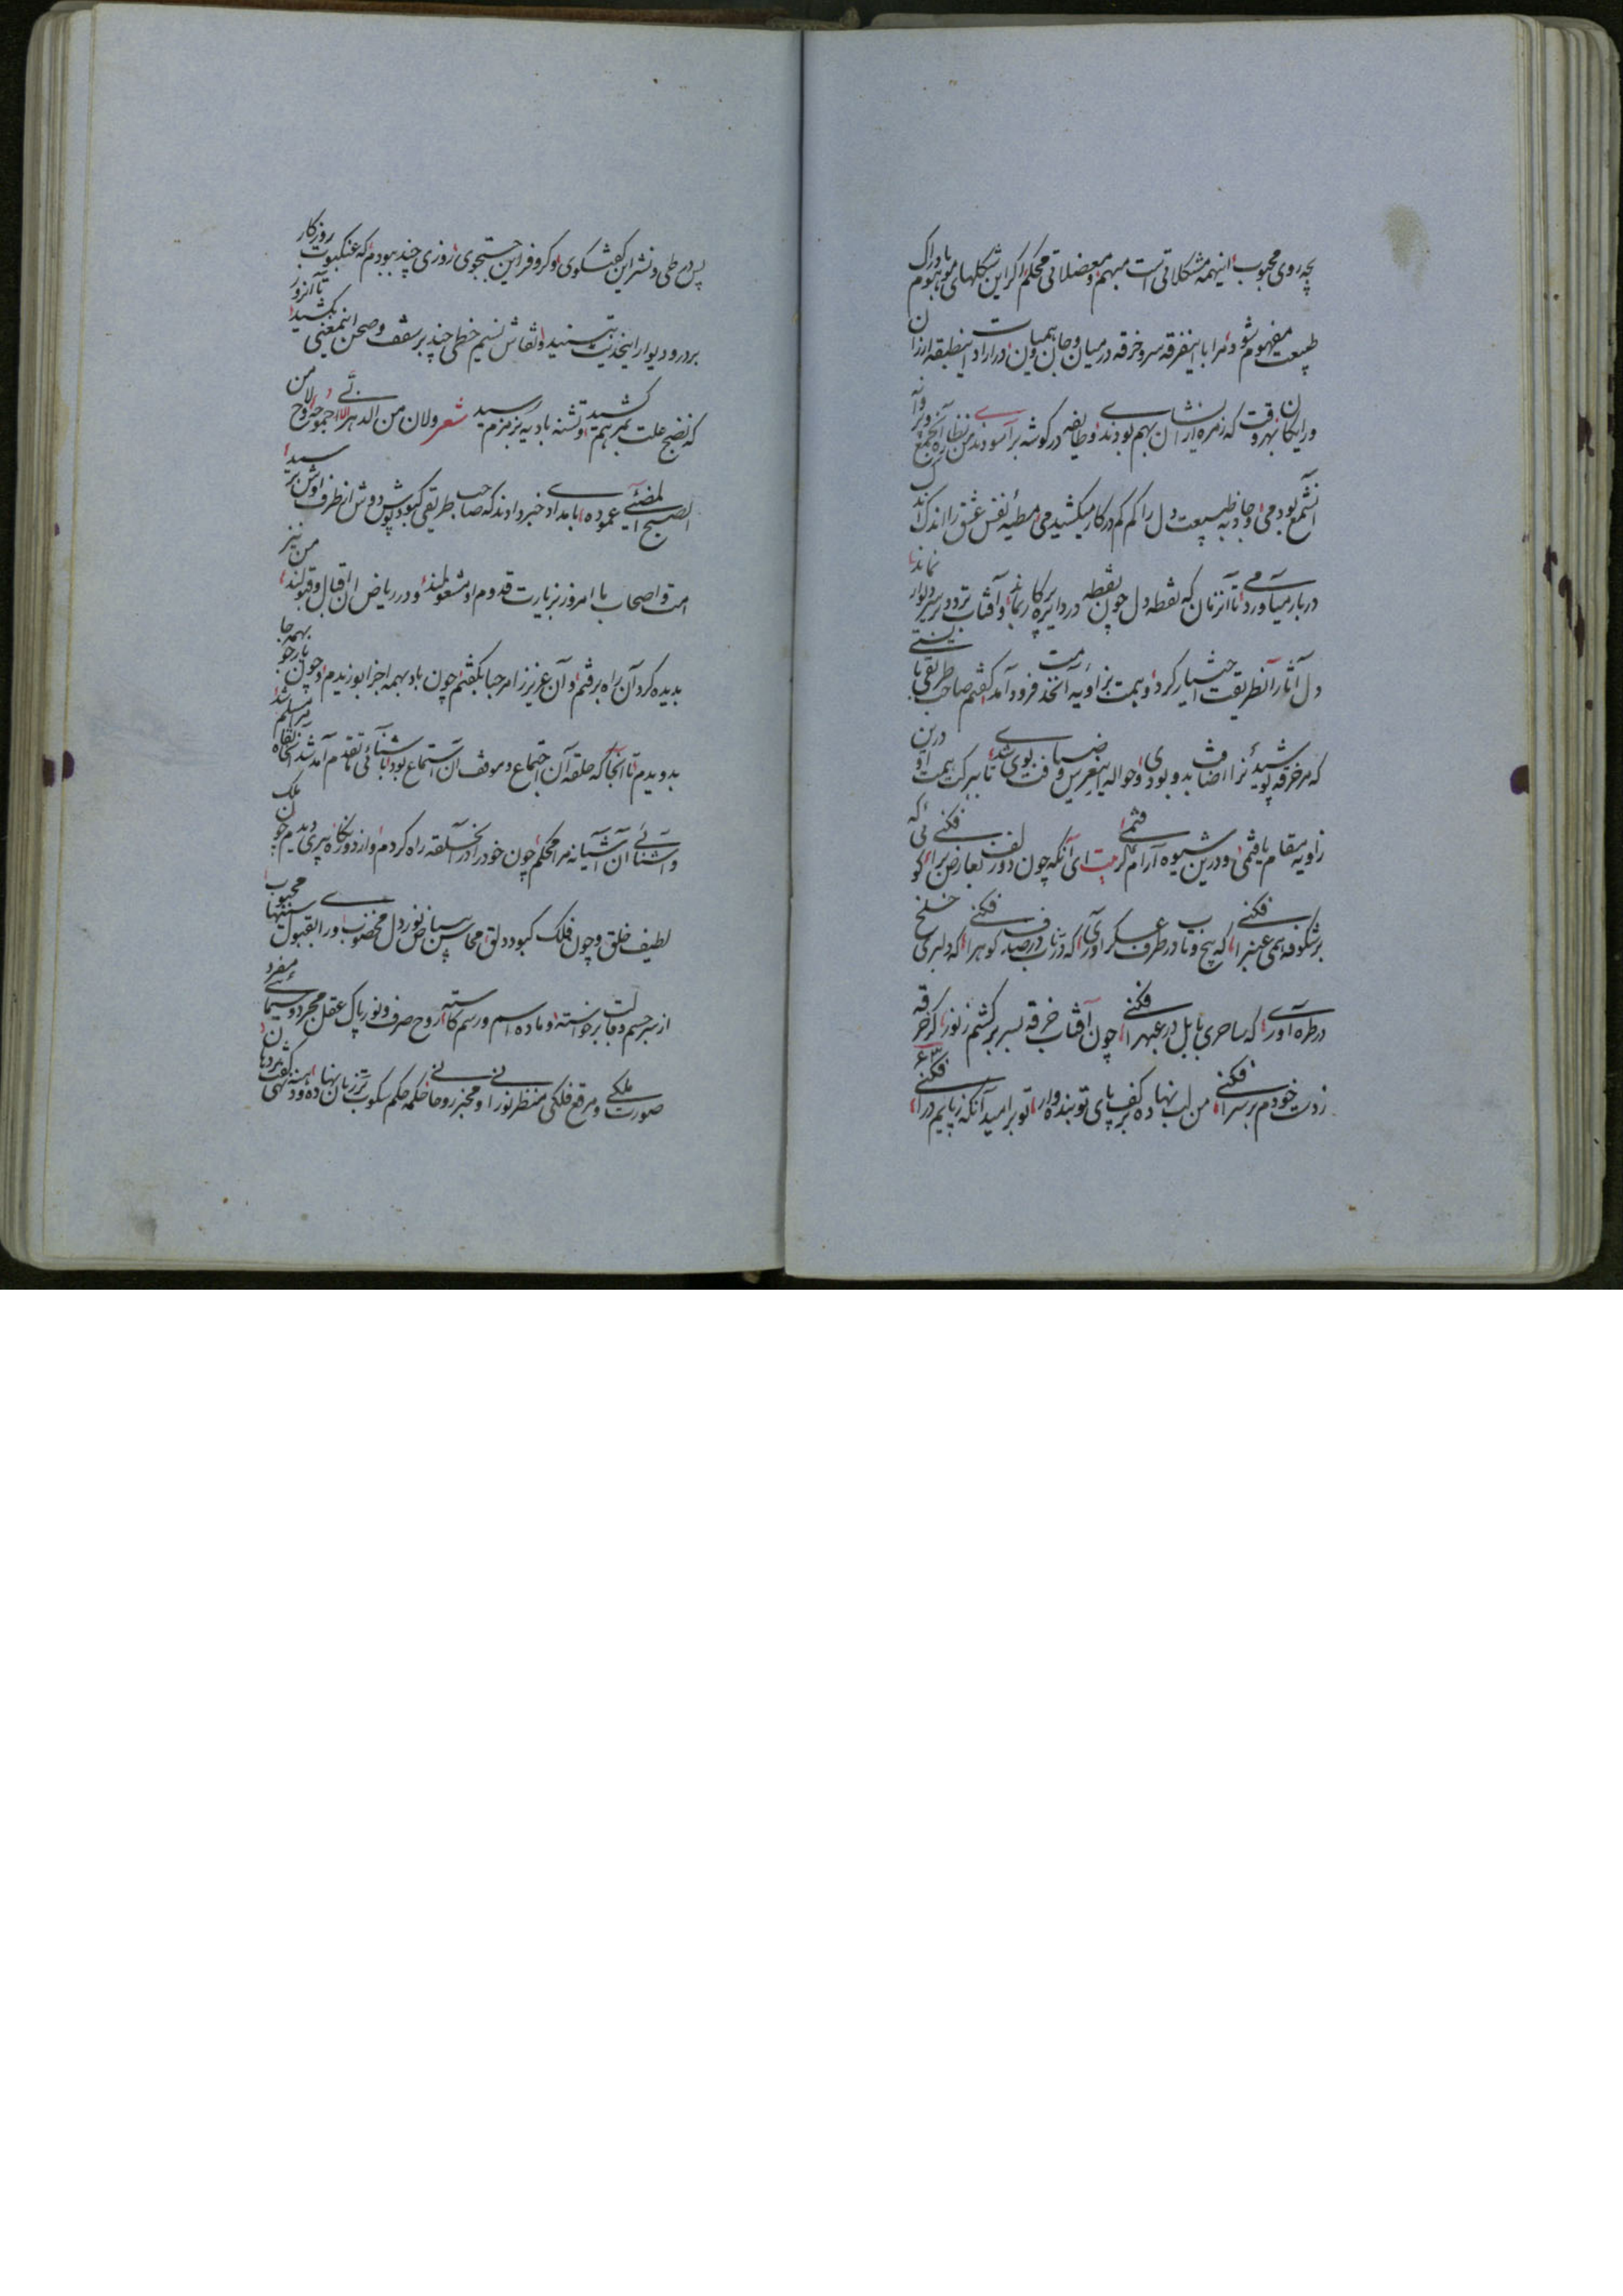 بچه روی محبوب اینهمه مشکلاتی است مبهم و معضلاتی محکم اگر این شکلهای موهوم بادراک
طبیعت مفهوم شود مرا با اینفرقه سر و خرقه در میان و جان و همیان در اراد اینطبقه ارزان
ورایگان بهر وقت که زمره ازایشان بهم بودندی وطایفه در گوشه برآسودندی من نظاره آنجمع
آنشمع بودمی و جاذبه طبیعت دل را کم کم در کار میکشیدمی مطیه نفس عشق را اندک اندک
در بار میآوردمی تا آنزمان که نقطه دل چون نقطه در دایره پرکار بماند وآفتاب تردد بر سر دیوار
دل آثار آنطریقت اختیار کرد و همت بزاویه آنخدمت فرود آمد گفتم صاحب طریقی بایستی
که مر خرقه پوشیدن را اضافت بدو بودی و حواله این غرس و ضیافت بوی شدی تا ببرکت همت او درین
زاویه مقام یافتمی و درین شیوه آرام گرفتمی بیت ای آنکه چون دو زلف تعارض برافکنی گوئی که
بر شکوفه همی عنبر افکنی که پیچ و تاب در طرف عسکر آوری گه در ناب در صدف گوهر افکنی گه دلبری خلخ
در طره آوری گه ساحری بابل در عبهر افکنی چون آفتاب خرقه بسر بر کشم ز نور گر خرقه
ز دست خودم بر سر افکنی من لب نهاده بر کف پای تو بنده وار تو بر امید آنکه ز پایم در افکنی
پس در طی و نشر این گفتگوی و کر و فر این جستجوی روزی چند ببودم که عنکبوت روزگار
بر در و دیوار اینحدیث بتنید و نقاش نسیم خطی چند بر سقف و صحن اینمعنی بکشید تا آنروز
که نضج علت بمرهم کشید و تشنه بادیه بزمزم رسید شعر ولان من الدهر
الصبح المضئی عموده بامداد خبر دادند که صاحب طریقی کبود پوش دوش از طرف اوش برسید
امت و اصحاب ما امروز بزیارت قدوم او مشغولند و در ریاض آن اقبال و قبولند من نیز
بدیده گرد آن راه برفتم و آن عزیز را مرحبا بگفتم چون باد بهمه اجزا بوزیدم و چون بهمه جا
بدویدم تا آنجا که حلقه آن اجتماع و موقف آن استماع بود با شنائی تقدم آمد شد آنخانقاه میسر مسلم شد
و آشنائی آن آشیانه مرا محکم چون خود را در آنحلقه راه کردم و از دور نگاه پیری دیدم چون ملک
لطیف خلق و چون فلک کبود دلق محاسن بیاض نور دل مخضوب و را بقبول سینها محبوب
از سر جسم و قالب برخاسته و ماده اسم و رسم کاسته روح صرف و نور پاک عقل مجرد و سیمای مفرد
صورت ملکی و مرقع فلکی منظر نورانی و مخبر روحانی